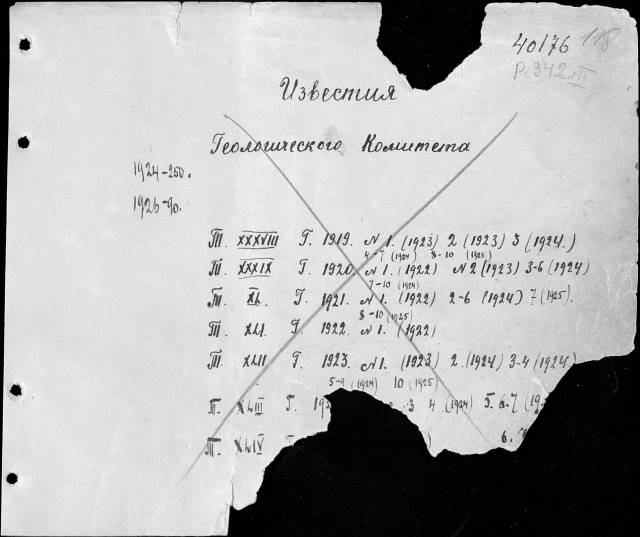 40176 118
P.342 III
Известия
Геологического Комитета
1924-250.
1926-90.
Т. XXXVIII Г. 1919. №1. (1923) 2 (1923) 3 (1924.)
4-7 (1924) 8-10 (1925)
Т. XXXIX Г. 1920. №1. (1922) №2 (1923) 3-6 (1924)
7-10 (1924)
Т. XL. Г. 1921. №1. (1922) 2-6 (1924) 7 (1925).
8-10 (1925)
Т. XLI. Г. 1922. №1. (1922)
Т. XLII Г. 1923. №1. (1923) 2. (1924) 3-4 (1924)
5-9 (1924) 10 (1925)
Т. XLIII Г. 192 3 4 (1924) 5. 6. 7 (19
Т. XLIV Г 6. 7